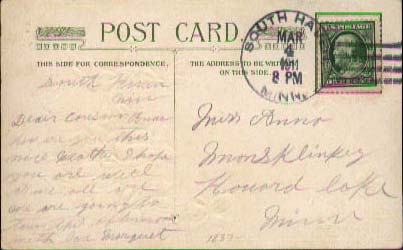 POST CARD.
THIS SIDE FOR CORRESPONDENCE.
THE ADDRESS TO BE WRITTEN
ON THIS SIDE.
SOUTH HA
MAR
4
1911
8 PM
MINN.
South Haven
Minn
Dear Cousin Anna
How are you this
nice weather I hope
you are well
we are all
we are going to
town this afternoon
with Margaret
Miss Anna
Howard Lake
Minn
1837-